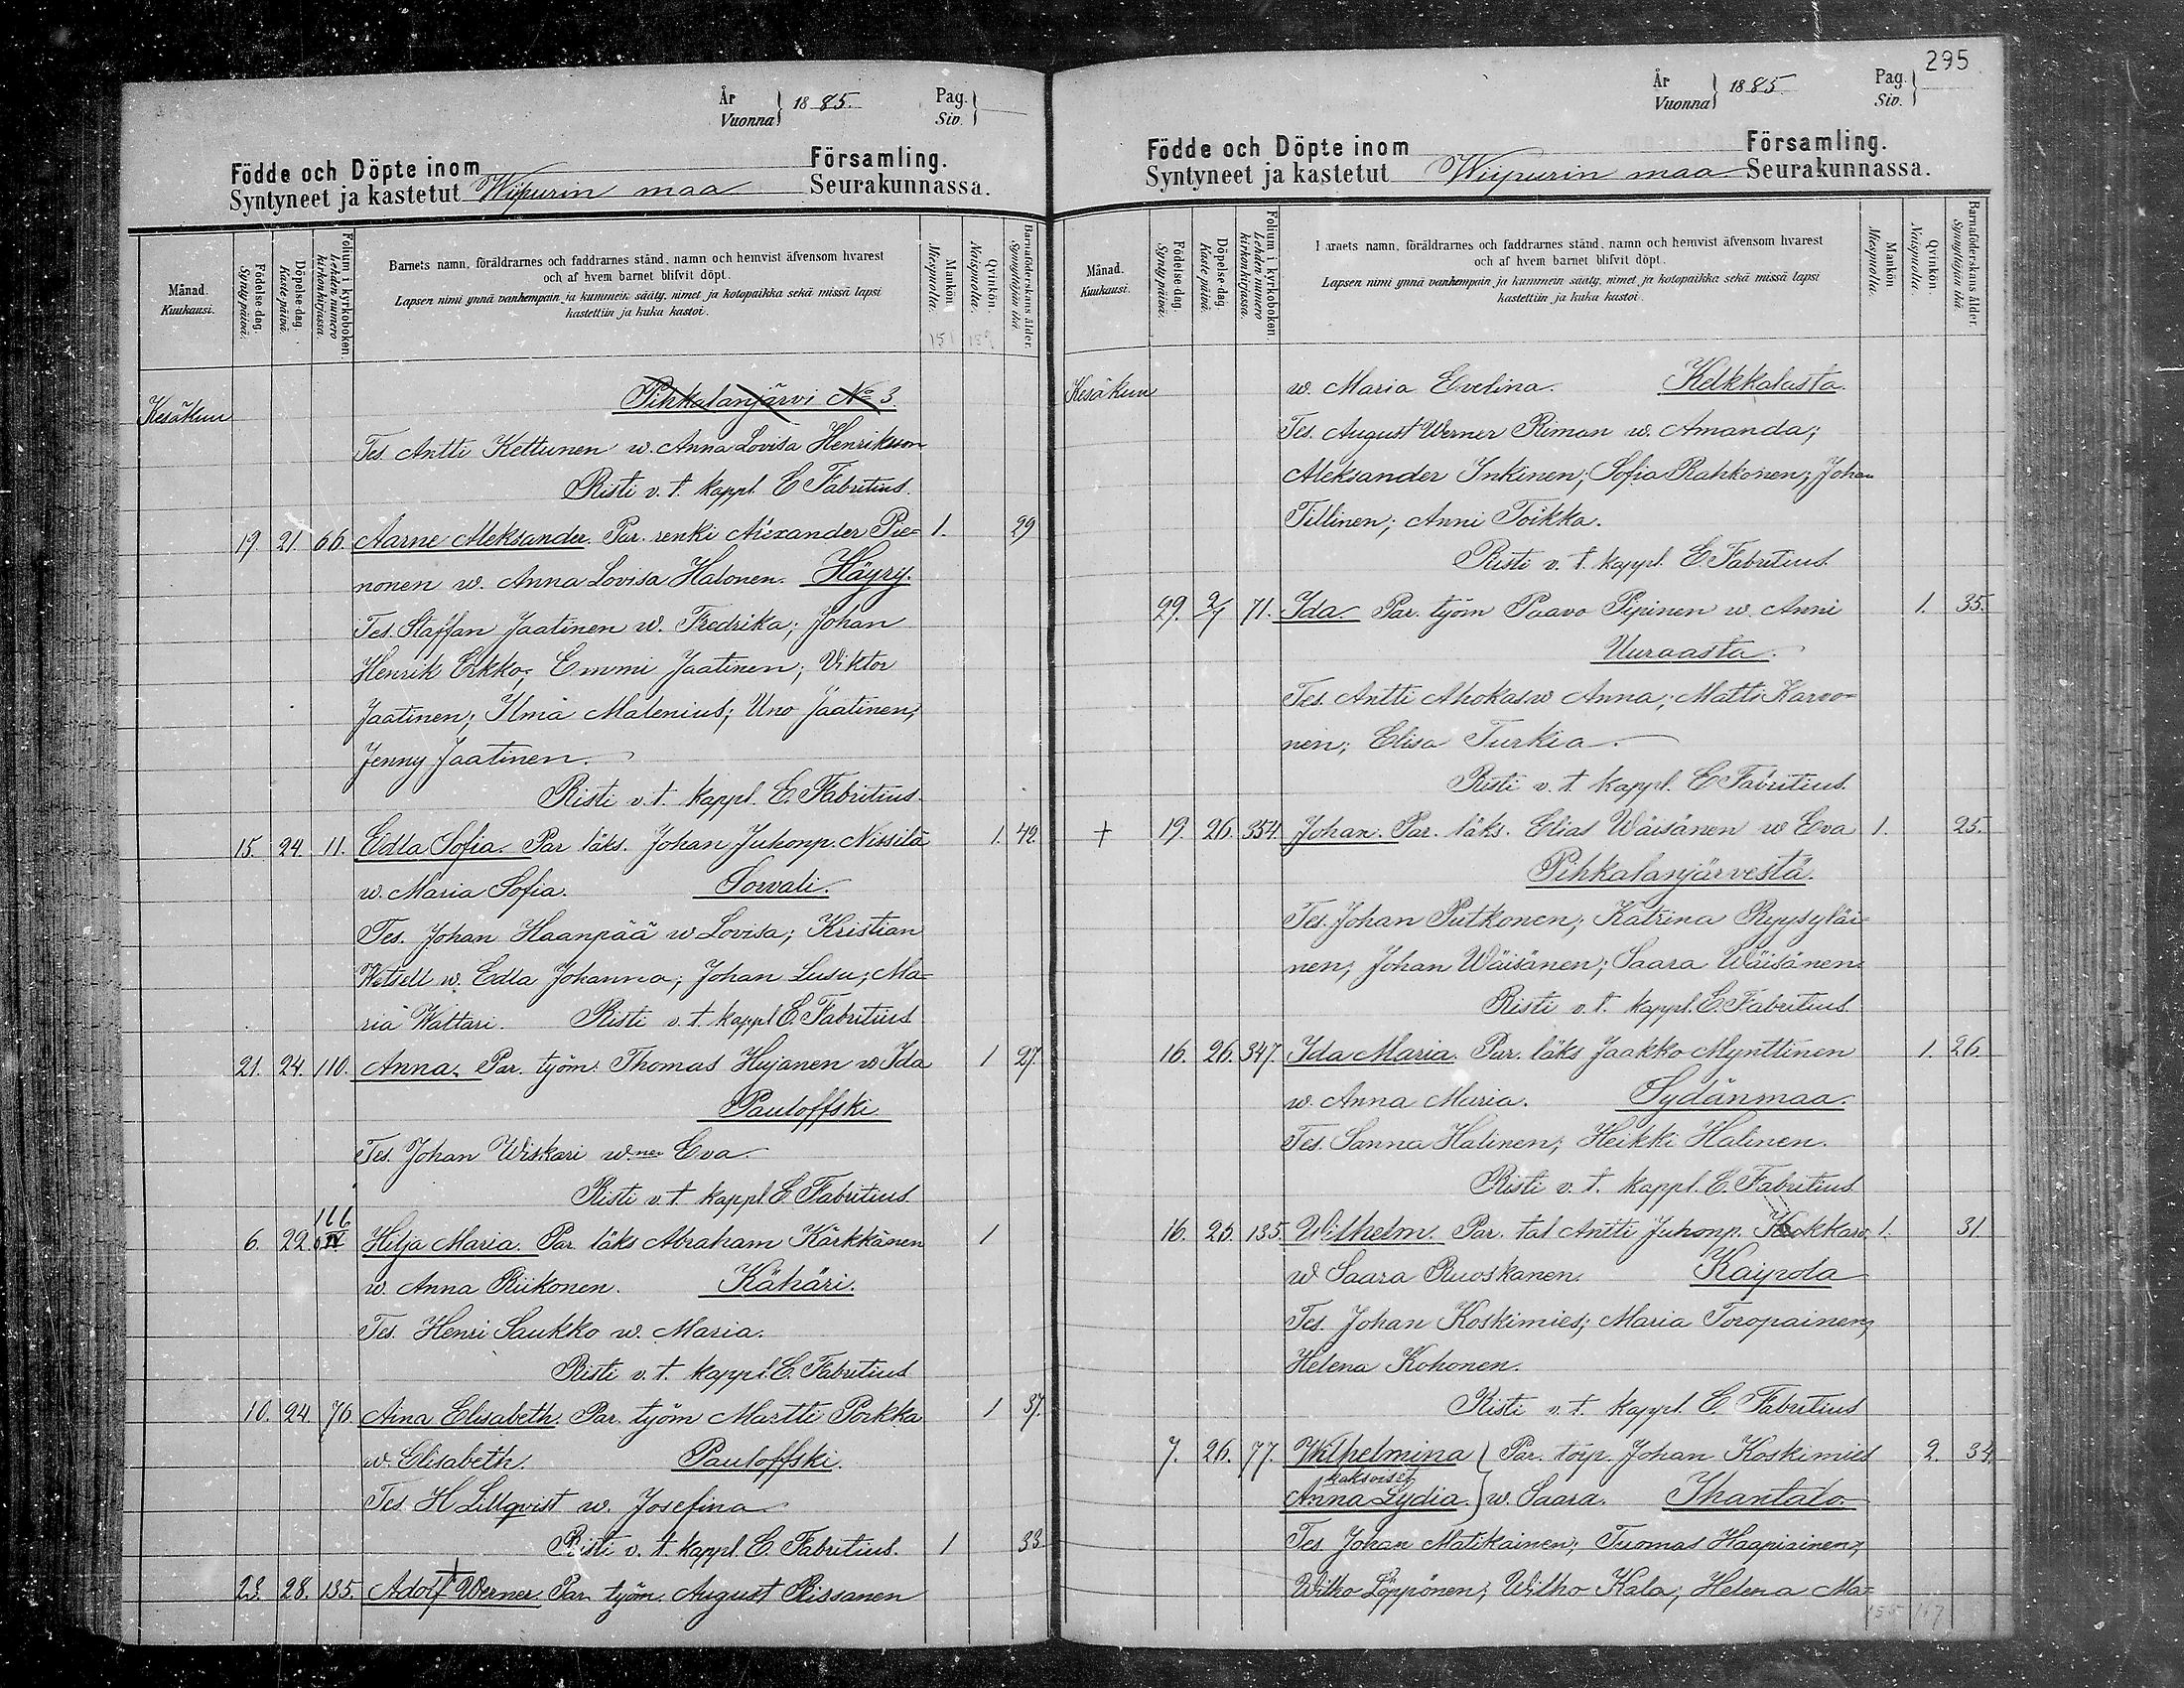 År
Vuonna } 1885.
Pag.
Siv. }
Födde och Döpte inom
Syntyneet ja kastetut Wiipurin maa
Församling.
Seurakunnassa.
Månad.
Kuukausi.
Födelse-dag.
Syntypäivä.
Döpelse-dag.
Kaste päivä.
Folium i kyrkoboken.
Lehden numero kirkonkirjassa.
Barnets namn, föräldrarnes och faddrarnes stånd, namn och hemvist äfvensom hvarest
och af hvem barnet blifvit döpt.
Lapsen nimi ynnä vanhempain ja kummein sääty, nimet ja kotopaikka sekä missä lapsi
kastettiin ja kuka kastoi.
Mankön.
Miespuolta.
Qvinkön.
Naispuolta.
Barnaföderskans ålder.
Synnyttäjän ikä.
Kesäkuu
Pihkalanjärvi No 3.
Tes Antti Kettunen w. Anna Lovisa Henrikson
Risti v. t. kappl. E Fabritius.
19. 21. 66. Aarne Aleksander. Par. renki Alexander Pie= 1. 29
nonen w. Anna Lovisa Halonen. Häyry.
Tes. Staffan Jaatinen w. Fredrika; Johan
Henrik Erkko; Emmi Jaatinen; Viktor
Jaatinen; Ilma Malenius; Uno Jaatinen,
Jenny Jaatinen.
Risti v. t. kappl. E. Fabritius.
15. 24. 11. Edla Sofia. Par läks. Johan Juhonp. Nissilä 1. 42
w. Maria Sofia. Sorvali.
Tes. Johan Haanpää w Lovisa; Kristian
Wetsell w. Edla Johanna; Johan Susu; Ma=
ria Wattari. Risti v. t. kappl E. Fabritius
21. 24. 110. Anna. Par. työm. Thomas Hujanen w Ida 1 27.
Pauloffski
Tes. Johan Wiskari w:nen Eva
Risti v. t. kappl. E Fabritius
166
6. 22. IV Hilja Maria. Par. läks Abraham Kärkkänen 1
w. Anna Riikonen. Kähäri.
Tes. Henri Saukko w. Maria.
Risti v. t. kappl. E. Fabritius
10. 24. 76. Aina Elisabeth. Par. työm Martti Poikka 1 37.
w. Elisabeth. Pauloffski.
Tes. H Lillqvist w. Josefina
Risti v. t. kappl. E. Fabritius. 1 33
23. 28. 135. Adolf Werner. Par. työm. August Rissanen
295
År
Vuonna } 1885.
Pag.
Siv. }
Födde och Döpte inom
Syntyneet ja kastetut Wiipurin maa
Församling.
Seurakunnassa.
Månad.
Kuukausi.
Födelse-dag.
Syntypäivä.
Döpelse-dag.
Kaste päivä.
Folium i kyrkoboken.
Lehden numero kirkonkirjassa.
Barnets namn, föräldrarnes och faddrarnes stånd, namn och hemvist äfvensom hvarest
och af hvem barnet blifvit döpt.
Lapsen nimi ynnä vanhempain ja kummein sääty, nimet ja kotopaikka sekä missä lapsi
kastettiin ja kuka kastoi.
Mankön
Miespuolta.
Qvinkön.
Naispuolta.
Barnaföderskans ålder.
Synnyttäjän ikä.
Kesäkuu
w. Maria Evelina. Kelkkalasta.
Tes. August Werner Riman w. Amanda;
Aleksander Inkinen; Sofia Rahkonen; Johan
Tillinen; Anni Toikka.
Risti v. t. kappl. E. Fabritius.
29. 2/7 71. Ida. Par. työm Paavo Pipinen w. Anni 1. 35.
Uuraasta.
Tes. Antti Ahokas w Anna; Matti Karvo=
nen; Elisa Turkia.
Risti v. t. kappl. E Fabritius.
+ 19. 26. 354. Johan. Par. läks. Elias Wäisänen w Eva 1. 25.
Pihkalanjärvestä.
Tes. Johan Putkonen; Katrina Ryysyläi=
nen; Johan Wäisänen; Saara Wäisänen.
Risti v. t. kappl. E. Fabritius.
16. 26. 347. Ida Maria. Par. läks Jaakko Mynttinen 1. 26
w. Anna Maria. Sydänmaa.
Tes. Sanna Halinen; Heikki Halinen.
Risti v. t. kappl. E. Fabritius
16. 25. 135. Wilhelm. Par. tal Antti Juhonp. Kokkaro, 1. 31.
w Saara Ruoskanen. Kaipola
Tes. Johan Koskimies; Maria Toropainen,
Helena Kohonen.
Risti v. t. kappl. E. Fabritius
7. 26. 77. Wilhelmina } Par. torp. Johan Koskimies 2. 34.
kaksoiset
Anna Lydia. } w. Saara. Ihantala.
Tes. Johan Matikainen; Tuomas Haapiainen;
Wilho Löppönen; Wilho Kala; Helena Ma=
155 117